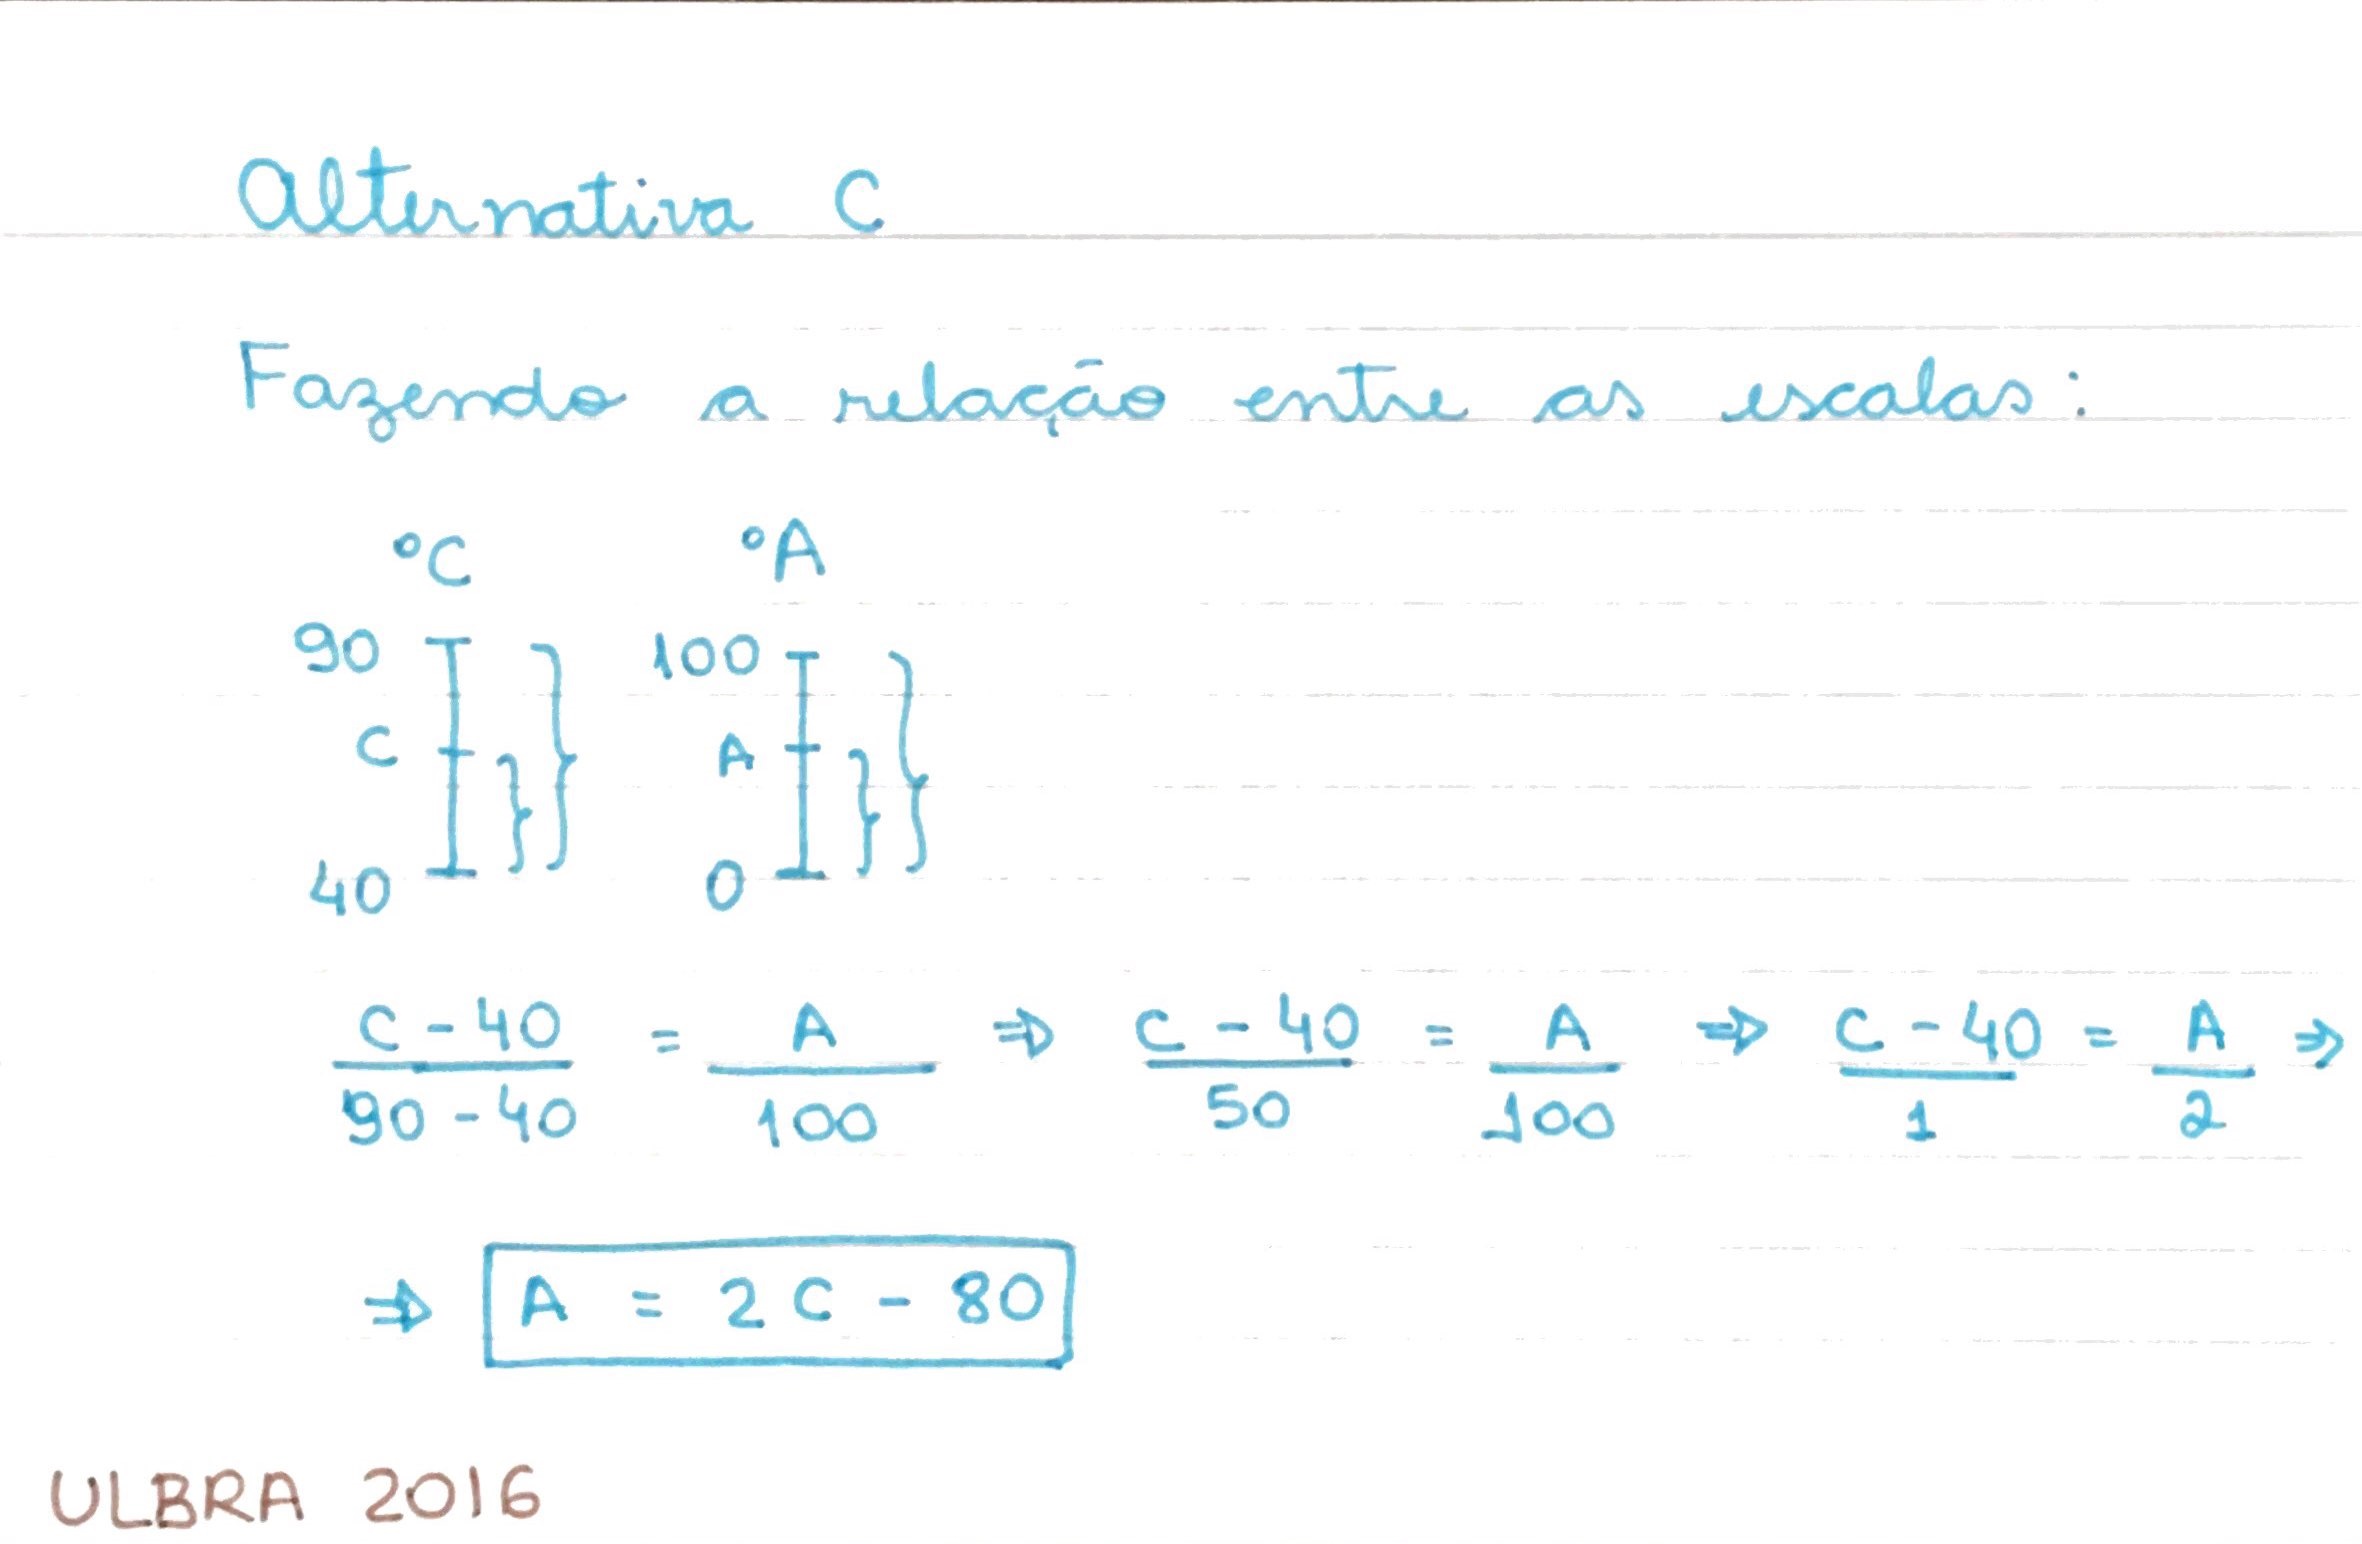 Alternativa C
Fazendo a relação entre as escalas:
°C °A
90 100
C A
40 0
C - 40 = A ⇒ C - 40 = A ⇒ C - 40 = A ⇒
90 - 40 100 50 100 1 2
⇒ A = 2C - 80
ULBRA 2016